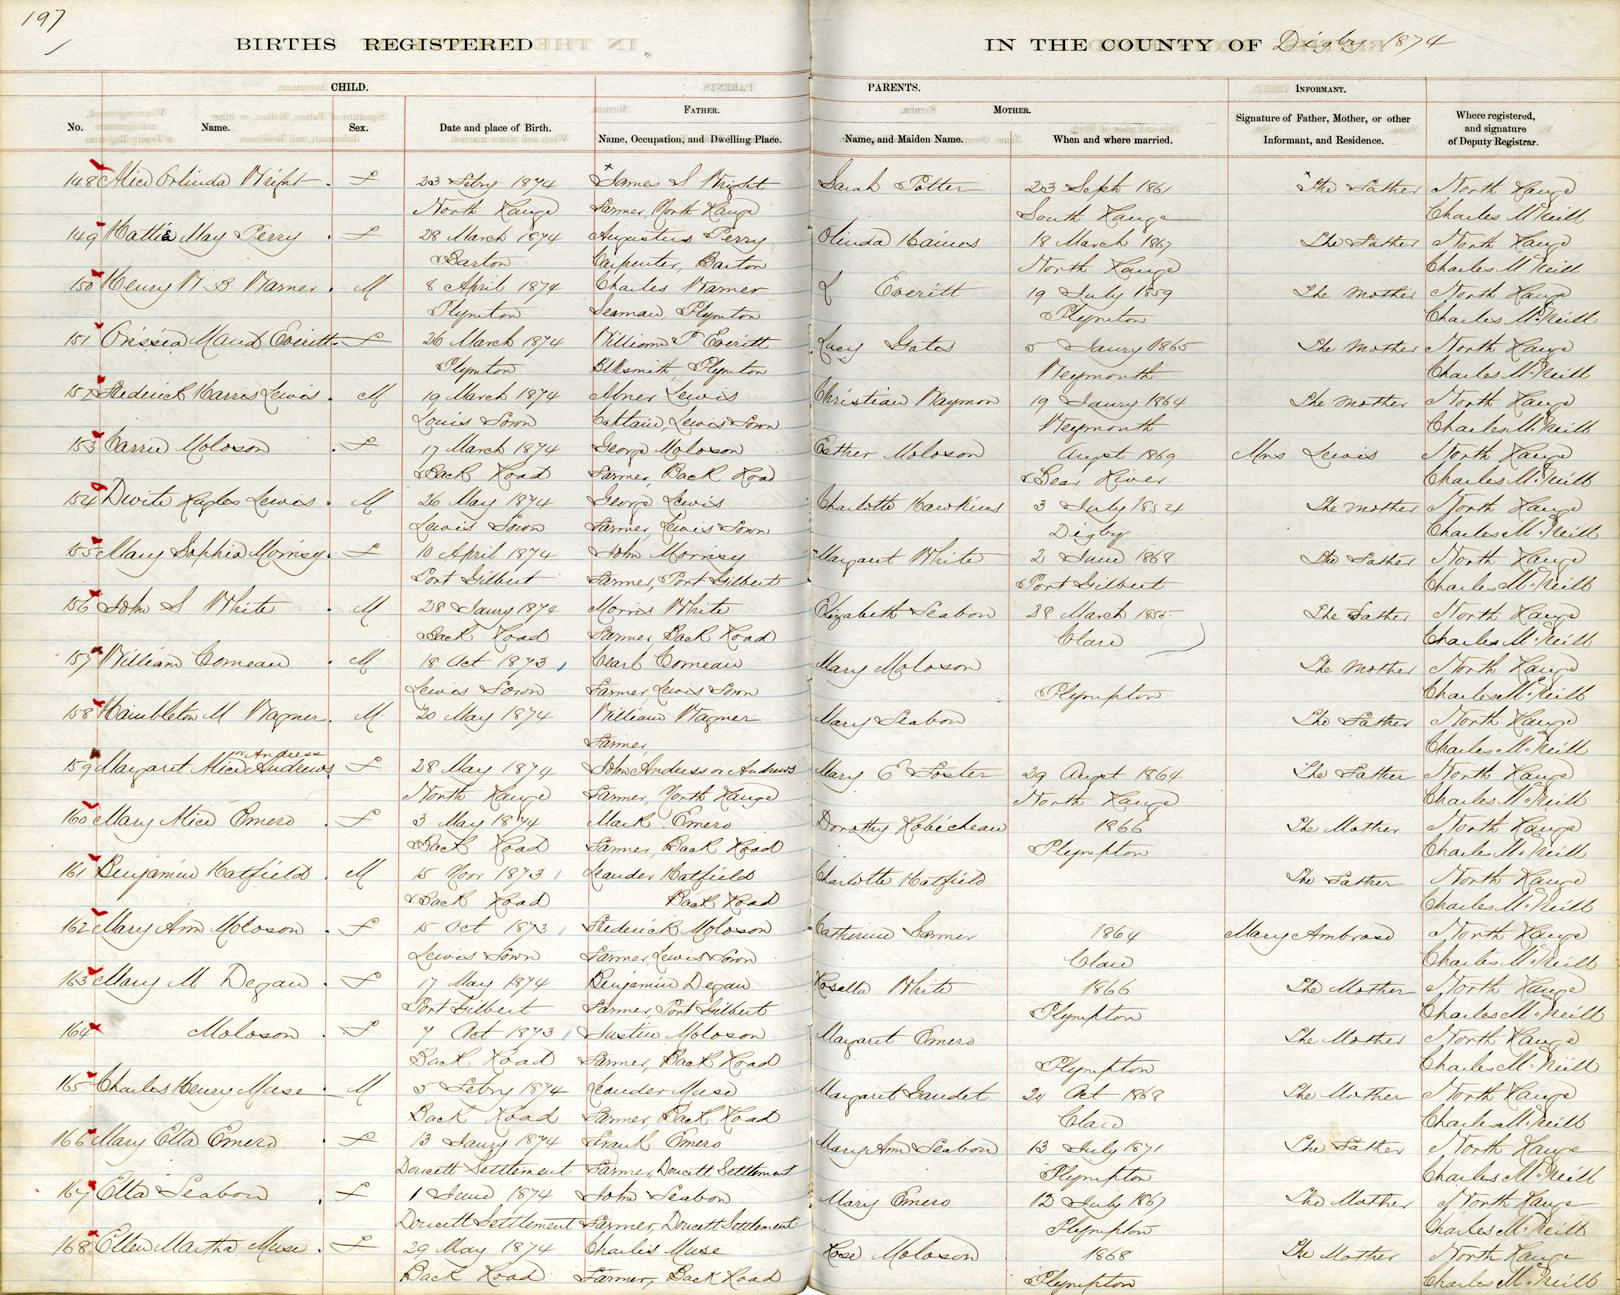 197
BIRTHS REGISTERED IN THE COUNTY OF Digby 1874
CHILD. PARENTS. INFORMANT.
FATHER. MOTHER.
No. Name. Sex. Date and place of Birth. Name, Occupation, and Dwelling Place. Name, and Maiden Name. When and where married. Signature of Father, Mother, or other Informant, and Residence. Where registered, and signature of Deputy Registrar.
148 Alice Orlinda Wright. F 23 Febry 1874 James S Wright Sarah Potter 23 Sept 1861 The Father North Range
North Range Farmer, North Range South Range Charles McNeill
149 Hattie May Perry. F 28 March 1874 Augustus Perry Olinda Haines 18 March 1867 The Father North Range
Barton Carpenter, Barton North Range Charles McNeill
150 Henry W B Warner. M 8 April 1874 Charles Warner L Everitt 19 July 1859 The Mother North Range
Plymton Seaman, Plymton Plymton Charles McNeill
151 Orissia Maud Everitt. F 26 March 1874 William T Everitt Lucy Gates 5 Jaury 1865 The Mother North Range
Plymton Blksmith, Plymton Weymouth Charles McNeill
152 Frederick Harris Lewis. M 19 March 1874 Abner Lewis Christian Waymon 19 Jaury 1864 The Mother North Range
Louis Town Captain, Lewis Town Weymouth Charles McNeill
153 Carrie Moloson. F 17 March 1874 George Moloson Esther Moloson Augst 1869 Mrs Lewis North Range
Back Road Farmer, Back Road Bear River Charles McNeill
154 Dwite Hagles Lewis. M 26 May 1874 George Lewis Charlotte Hawkins 3 July 1854 The Mother North Range
Lewis Town Farmer, Lewis Town Digby Charles McNeill
155 Mary Sophia Morrisy. F 10 April 1874 John Morrisy Margaret White 2 June 1868 The Father North Range
Port Gilbert Farmer, Port Gilbert Port Gilbert Charles McNeill
156 John S White. M 28 Jaury 1874 Morris White Elizabeth Seabon 28 March The Father North Range
Back Road Farmer, Back Road Clare Charles McNeill
157 William Comeau. M 18 Oct 1873 Comeau Mary Moloson The Mother North Range
Lewis Town Farmer, Lewis Town Plympton Charles McNeill
158 Hambleton M Wagner. M 20 May 1874 William Wagner Mary Seabon The Father North Range
Farmer, Charles McNeill
or Andress
159 Margaret Alice Andrews F 28 May 1874 John Andress or Andrews Mary E Foster 29 Augst 1864 The Father North Range
North Range Farmer, North Range North Range Charles McNeill
160 Mary Alice Emero. F 3 May 1874 Mark Emero Dorothy Robicheau 1866 The Mother North Range
Back Road Farmer, Back Road Plympton Charles McNeill
161 Benjamin Hatfield. M 15 Nov 1873 Leander Hatfield Charlotte Hatfield The Father North Range
Back Road Back Road Charles McNeill
162 Mary Ann Moloson. F 15 Oct 1873 Frederick Moloson Catherine 1864 Mary Ambrose North Range
Lewis Town Farmer, Lewis Town Clare Charles McNeill
163 Mary M Degan. F 17 May 1874 Benjamin Degan Rosella White 1866 The Mother North Range
Port Gilbert Farmer, Port Gilbert Plympton Charles McNeill
164 Moloson. F 7 Oct 1873 Justin Moloson Margaret Emero The Mother North Range
Back Road Farmer, Back Road Plympton Charles McNeill
165 Charles Henry Muse M 5 Febry 1874 Leander Muse Margaret Gaudet 24 Oct 1868 The Mother North Range
Back Road Farmer Back Road Clare Charles McNeill
166 Mary Etta Emero. F 13 Jaury 1874 Frank Emero Mary Ann Seabon 13 July 1871 The Father North Range
Doucett Settlement Farmer, Doucett Settlement Plympton Charles McNeill
167 Etta Seabon. F 1 June 1874 John Seabon Mary Emero 12 July 1867 The Mother North Range
Doucett Settlement Farmer, Doucett Settlement Plympton Charles McNeill
168 Ellen Martha Muse. F 29 May 1874 Charles Muse Rose Moloson 1868 The Mother North Range
Back Road Farmer, Back Road Plympton Charles McNeill